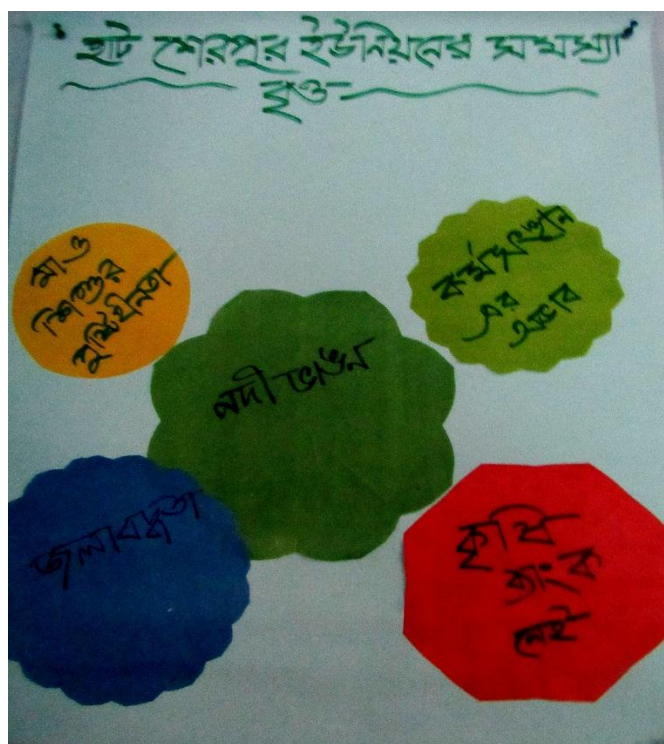 হাট শেরপুর ইউনিয়নের সমস্যা
বৃত্ত
মা ও
শিশুর
পুষ্টিহীনতা
কর্মসংস্থান
এর
অভাব
নদী ভাঙন
জলাবদ্ধতা
কৃষি
ব্যাংক
নেই